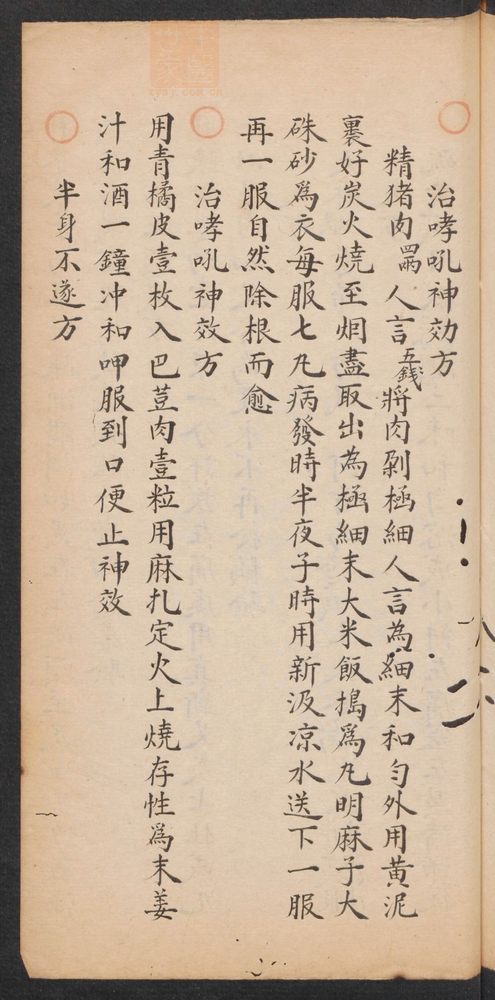 治哮吼神効方
精猪肉四兩人言五錢將肉剁極細人言為細末和勻外用黃泥
裹好炭火燒至烟盡取出為極細末大米飯搗爲丸明麻子大
硃砂爲衣每服七丸病發時半夜子時用新汲凉水送下一服
再一服自然除根而愈
治哮吼神效方
用青橘皮壹枚入巴荳肉壹粒用麻扎定火上燒存性爲末姜
汁和酒一鐘冲和呷服到口便止神效
半身不遂方